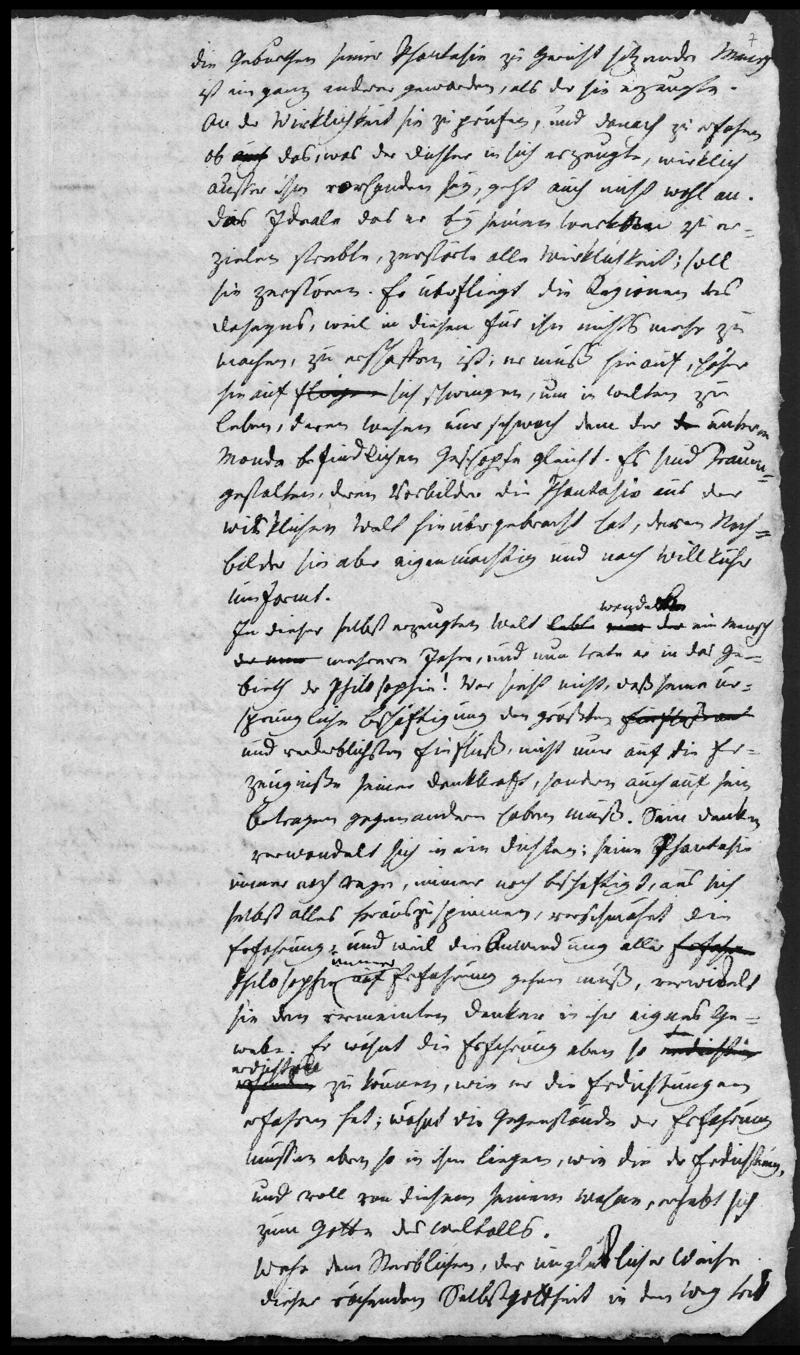 7
die Geburthen seiner Phantasie zu Gericht sitzender Mensch
ist ein ganz anderer geworden, als der sie erzeugte.
An der Wirklichkeit sie zu prüfen, und danach zu erfahren
ob auch das, was der Dichter in sich erzeugte, wirklich
ausser ihm vorhanden sey, geht auch nicht wohl an.
das Ideale das er bey seinen Wercken zu er=
zielen strebte, zerstörte alle Wirklichkeit; soll
sie zerstören. Er überfliegt die Regionen des
Daseyns, weil in diesen für ihn nichts mehr zu
machen, zu erschaffen ist; er muß hinauf, höher
hinauf fliegen sich schwingen, um in Welten zu
leben, deren Wesen nur schwach dem der unterm
Monde befindlichen Geschöpfe gleicht. Es sind Traum=
gestalten, deren Vorbilder die Phantasie aus der
wirklichen Welt hinüber gebracht hat, deren Nach=
bilder sie aber eigenmächtig und nach Willkühr
umformt.
wandelte
In dieser selbst erzeugten Welt lebte der ein Mensch
mehrere Jahre, und nun trete er in das Ge=
bieth der Philosophie! Wer sieht nicht, daß seine ur=
sprüngliche Beschäftigung den grösten Einfluß auf
und verderblichsten Einfluß, nicht nur auf die Er=
zeugniße seiner Denkkraft, sondern auch auf sein
Betragen gegen andere haben muß. Sein Denken
verwandelt sich in ein Dichten; seine Phantasie
immer noch rege, immer noch beschäftigt, aus sich
selbst alles herauszuspinnen, verschmähet die
Erfahrung; und weil die Anwendung aller
immer
Philosophie auf Erfahrung gehen muß, verwickelt
sie den vermeinten Denker in ihr eignes Ge=
webe. Er wähnt die Erfahrung eben so
erdichten
zu können, wie er die Erdichtungen
erfahren hat; wähnt die Gegenstände der Erfahrung
müssen eben so in ihm liegen, wie die der Erdichtung,
und voll von diesem seinem Wahne, erhebt sich
zum Gotte des Weltalls.
Wehe dem Sterblichen, der unglücklicher Weise
dieser rächenden Selbstgottheit in den Weg tritt